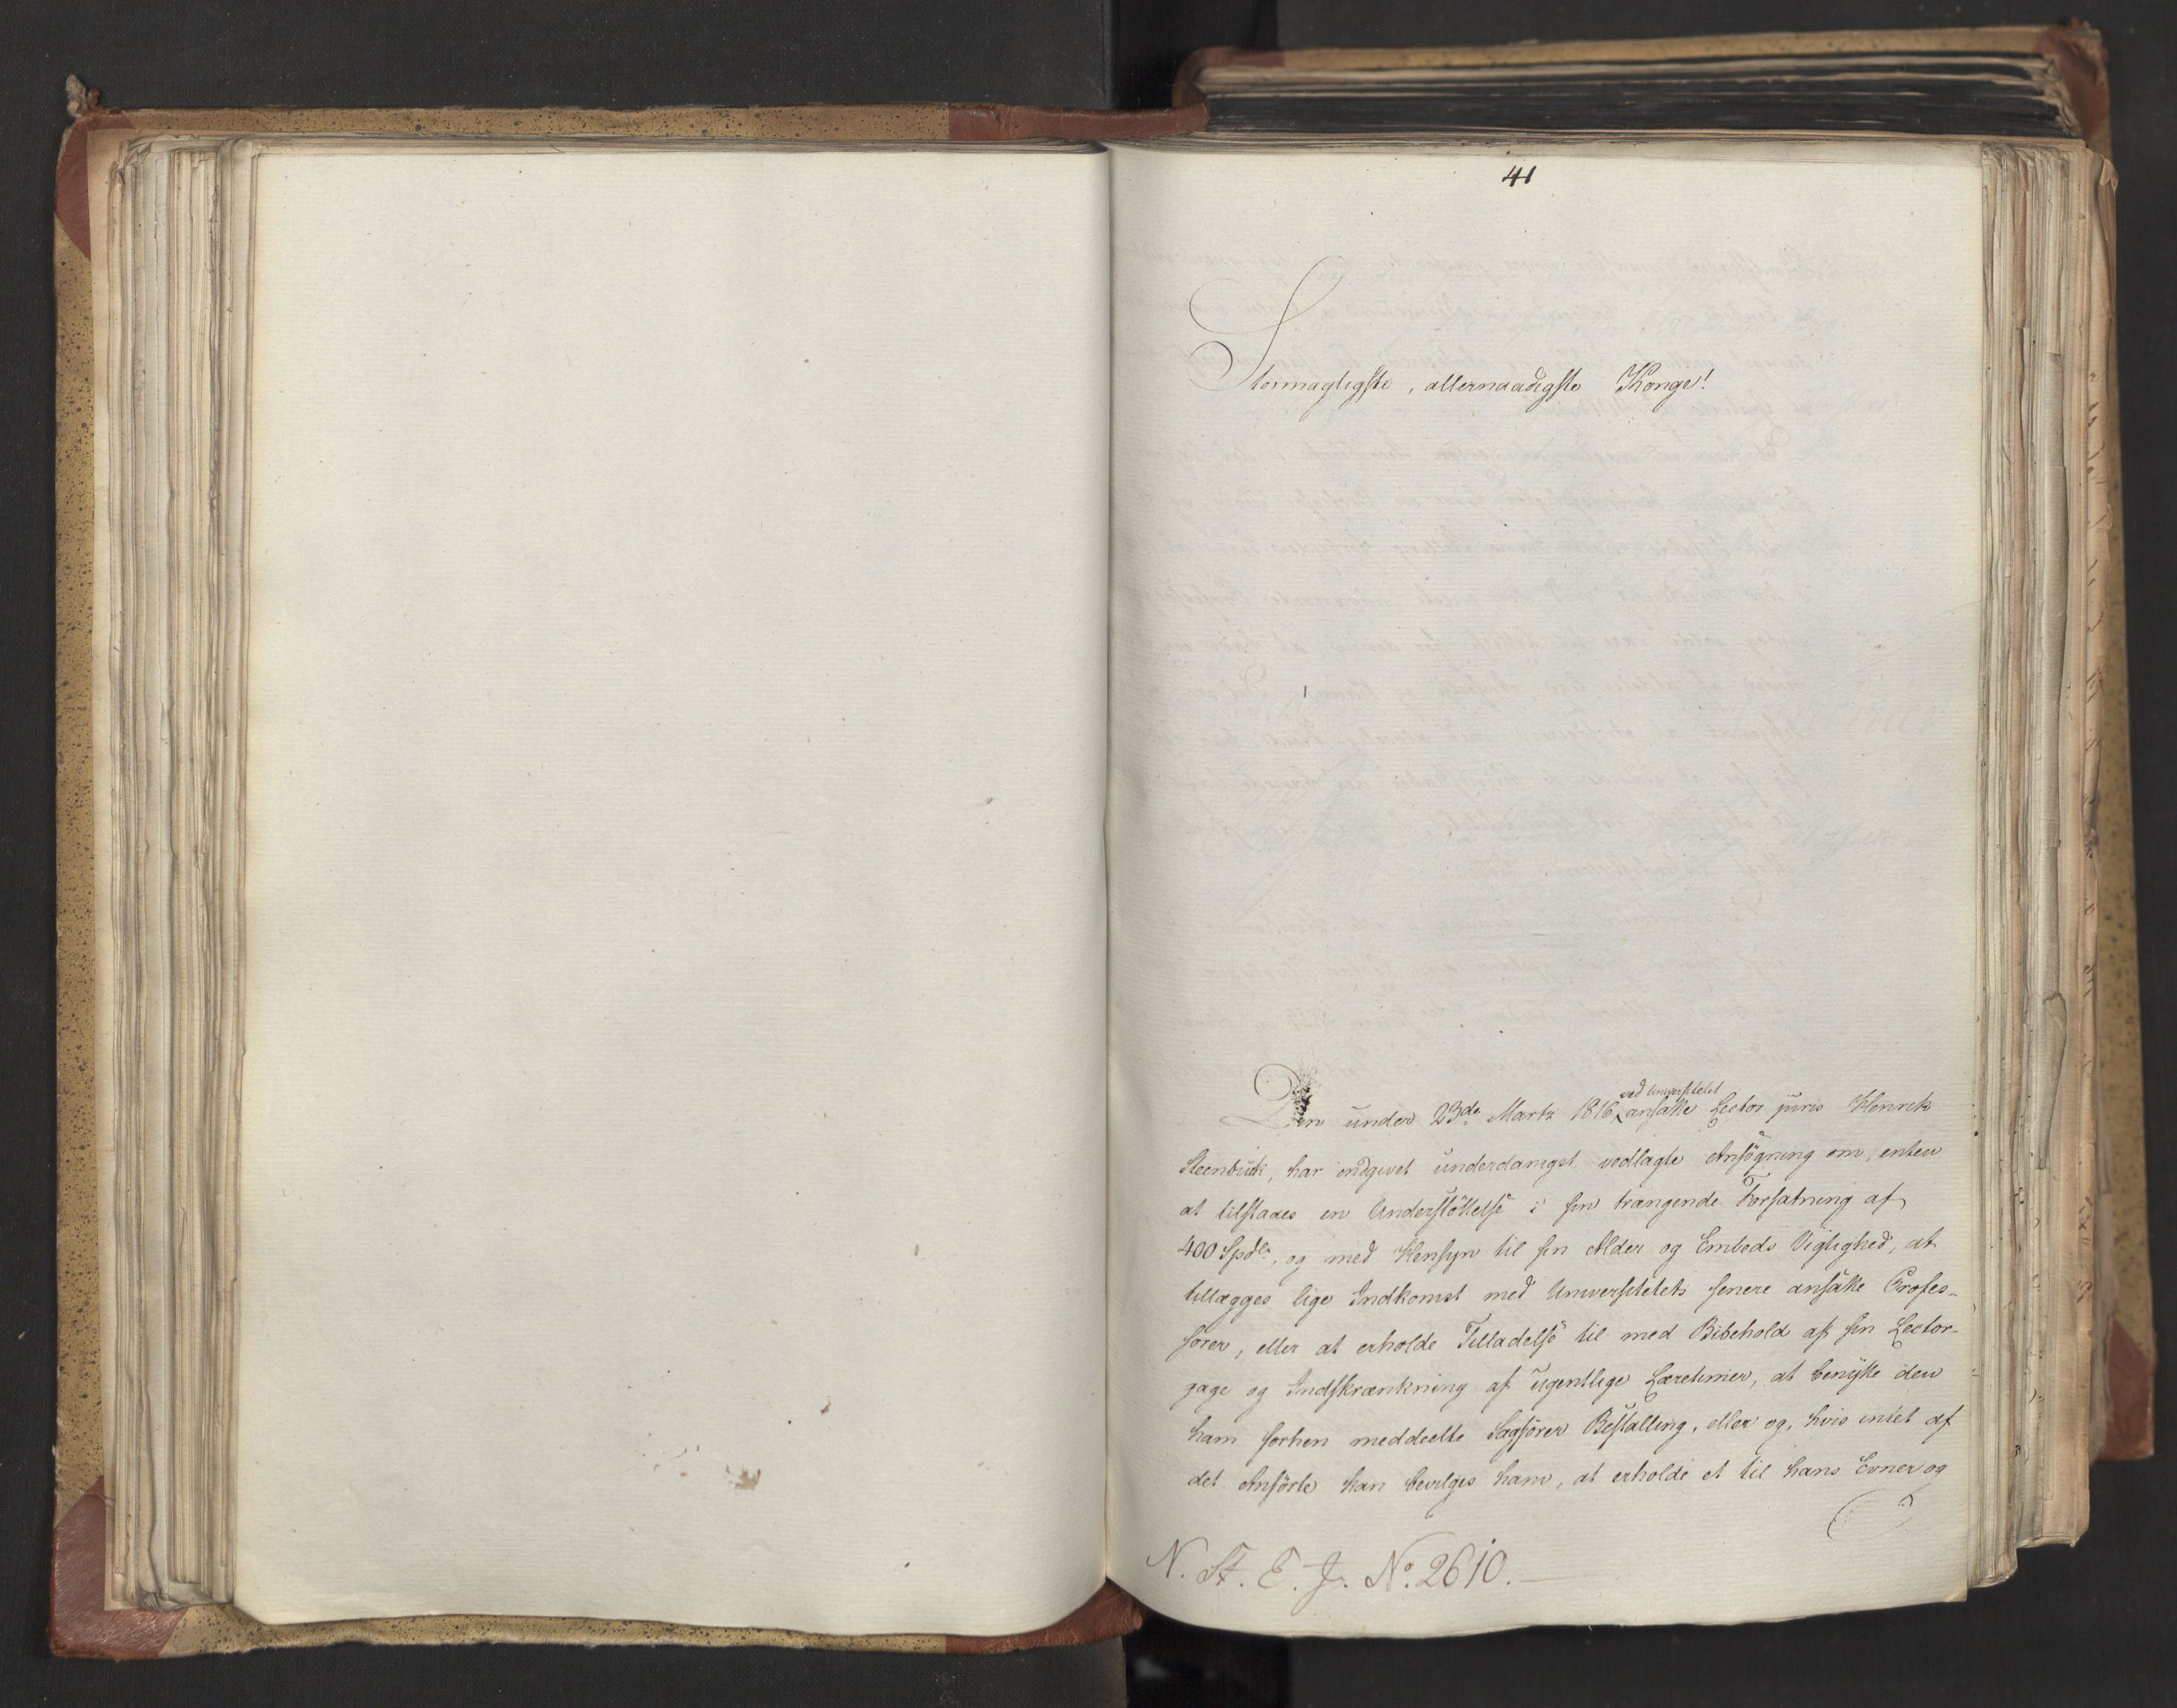 41
Stormægtigste, allernaadigste Konge!
Den under 23de Martz 1816 ved Universitetet ansatte Lector juris Henrik
Steenbuk, har indgivet underdanigst vedlagte Ansögning om, enten
at tilstaaes en Understöttelse i sin trangende Forfatning af
400 Spdlr, og med Hensyn til sin Alder og Embeds Vigtighed, at
tillægges lige Indkomst med Universitetets senere ansatte Profes-
sorer, eller at erholde Tilladelse til med Bibehold af sin Lector-
gage og Indskrænkning af ugentlige Læretimer, at benytte den
ham forhen meddeelte Sagförer Bestalling, eller og, hvis intet af
det Anförte kan bevilges ham, at erholde et til hans Evner og
N. St. E. J. No. 2610.